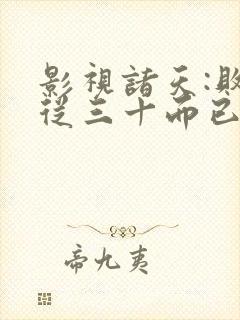 影視諸天:敗
從三十而已
帝九夷